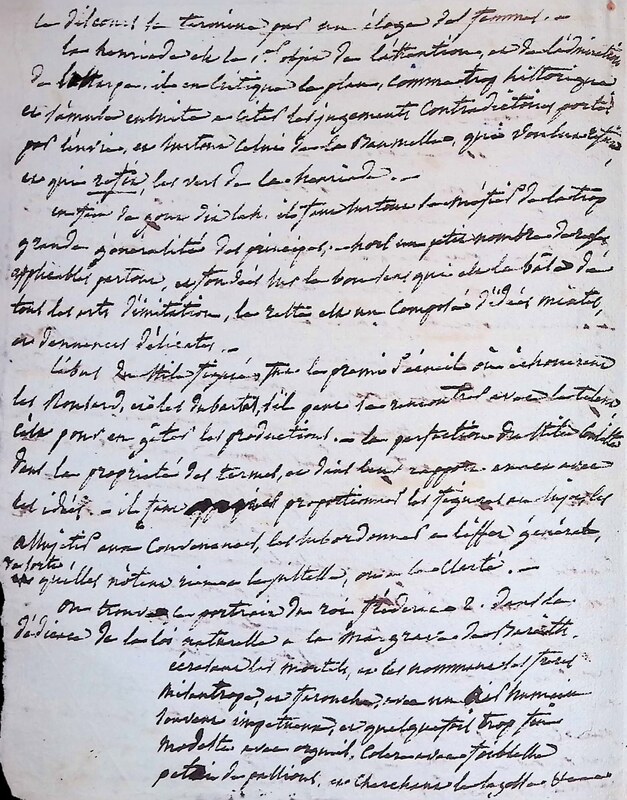 le discours se termine par un éloge des femmes. –
la henriade est le 1er objet de l'attention, et de l'admiration
de laharpe. il en critique le plan, comme trop historique
et s'amuse ensuite a citer les jugements contradictoires portés
par l'envie, et surtout celui de la Baumelle, qui voulut refaire
et qui refit, les vers de la henriade. –
en fait de gout dit lah. il faut surtout se méfier de la trop
grande généralité des principes, – hors un petit nombre de
applicables partout, et fondés sur le bon sens qui est la base de
tous les arts d'imitation, le reste est un composé d'idées mixtes,
et de nuances délicates. –
l'abus du stile figuré fut le premier écueil où échouerent
les Ronsard, et les dubartas, s'il peut se rencontrer avec le talent
c'est pour en gâter les productions. – la perfection du stile consiste
dans la propriété des termes, et dans leur rapport exact avec
les idées – il faut proportionner les figures au sujet, les
assujetir aux convenances, les subordonner a l'effet général,
de sorte qu'elles n'ôtent rien a la justesse, ou a la clarté. –
on trouve le portrait du roi fréderic 2. dans la
dédicace de la loi naturelle a la margrave de Bareith.
écrasant les mortels, et les nommant ses freres
misantrope, et farouche, avec un air humain
souvent impetueux, et quelquefois trop fin
modeste avec orgueil, colere avec foiblesse
petri de passions, et cherchant la sagesse